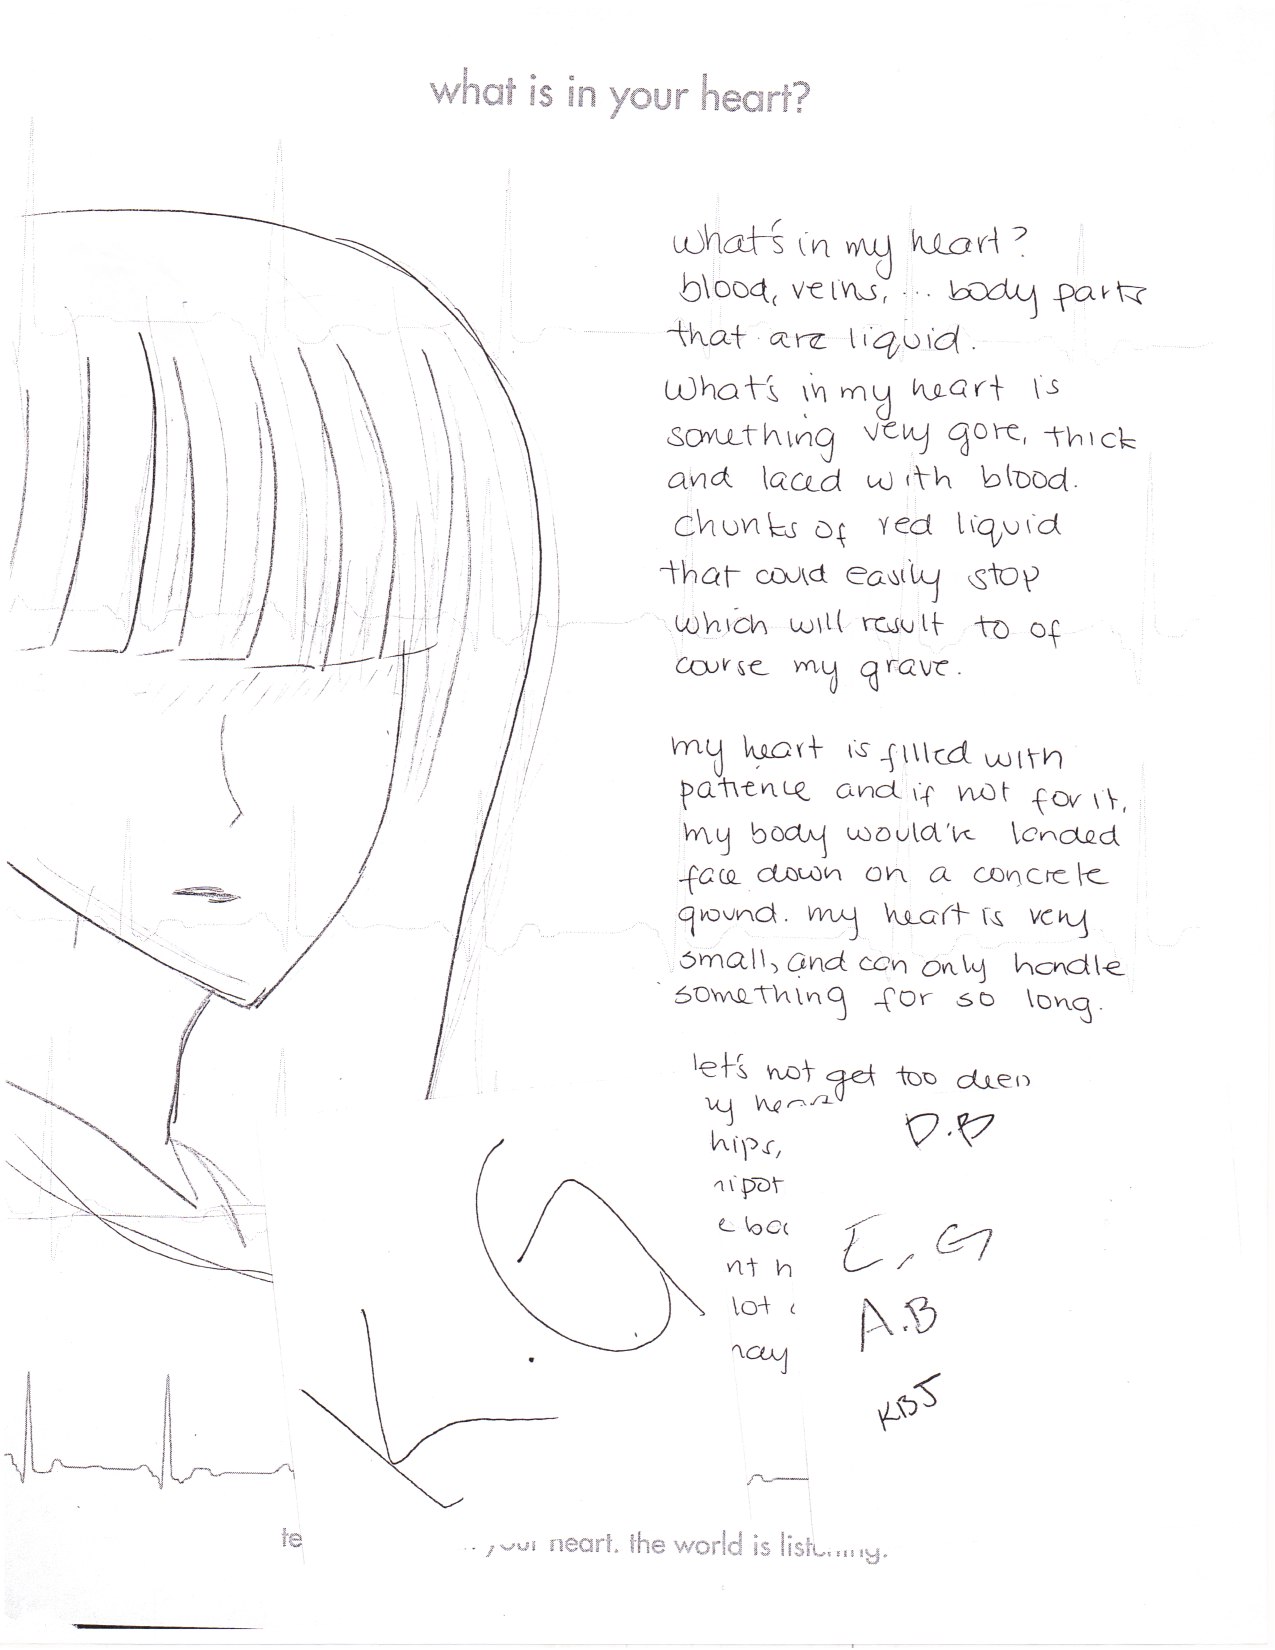 what is in your heart?
what's in my heart?
blood, veins, ... body parts
that are liquid.
what's in my heart is
something very gore, thick
and laced with blood.
chunks of red liquid
that could easily stop
which will result to of
course my grave.
my heart is filled with
patience and if not for it,
my body would've landed
face down on a concrete
ground. my heart is very
small, and can only handle
something for so long.
let's not get too deep
D.B
hips,
E.G
nt h
lot
A.B
KBJ
K.G
te your heart. the world is listening.